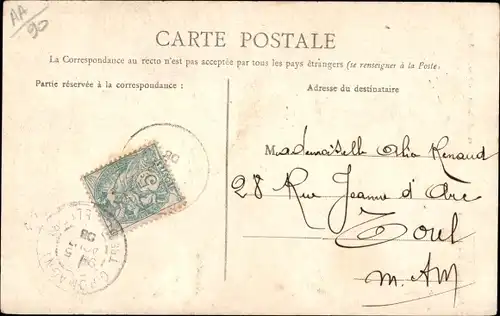 AA
90
CARTE POSTALE
La Correspondance au recto n'est pas acceptée par tous les pays étrangers (se renseigner à la Poste.
Partie réservée à la correspondance :
Adresse du destinataire
Mademoiselle Alia Renaud
28 Rue Jeanne d'Arc
Toul
M. AM
5
08